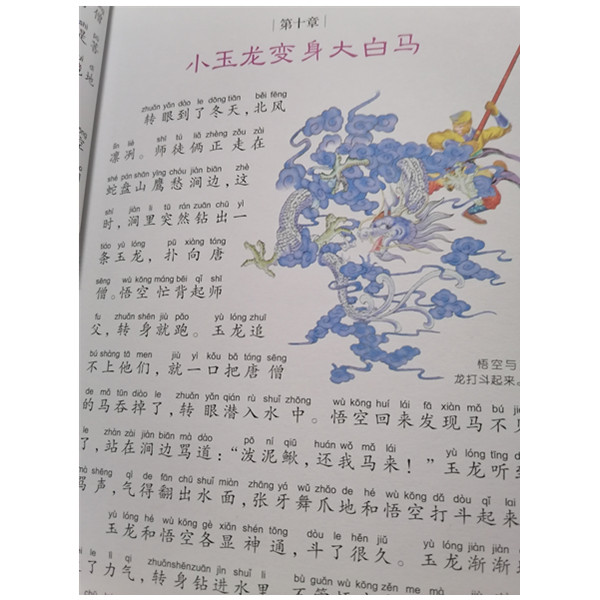 第十章
小玉龙变身大白马
zhuǎn yǎn dào le dōng tiān běi fēng
转眼到了冬天，北风
lǐn liè shī tú liǎ zhèng zǒu zài
凛冽。师徒俩正走在
shé pán shān yīng chóu jiàn biān zhè
蛇盘山鹰愁涧边，这
shí jiàn lǐ tū rán zuān chū yì
时，涧里突然钻出一
tiáo yù lóng pū xiàng táng
条玉龙，扑向唐
sēng wù kōng máng bēi qǐ shī
僧。悟空忙背起师
fu zhuǎn shēn jiù pǎo yù lóng zhuī
父，转身就跑。玉龙追
bú shàng tā men jiù yì kǒu bǎ táng sēng
不上他们，就一口把唐僧
悟空与
龙打斗起来。
de mǎ tūn diào le zhuǎn yǎn qián rù shuǐ zhōng wù kōng huí lái fā xiàn mǎ bú jiàn
的马吞掉了，转眼潜入水中。悟空回来发现马不见
le zhàn zài jiàn biān mà dào pō ní qiū huán wǒ mǎ lái yù lóng tīng
了，站在涧边骂道：“泼泥鳅，还我马来！”玉龙听到
mà shēng qì de fān chū shuǐ miàn zhāng yá wǔ zhǎo de hé wù kōng dǎ dòu qǐ lai
骂声，气得翻出水面，张牙舞爪地和悟空打斗起来
yù lóng hé wù kōng gè xiǎn shén tōng dòu le hěn jiǔ yù lóng jiàn jiàn
玉龙和悟空各显神通，斗了很久。玉龙渐渐
le lì qi zhuǎn shēn zuān jìn shuǐ lǐ bù guǎn wù kōng zěn me mà
了力气，转身钻进水里